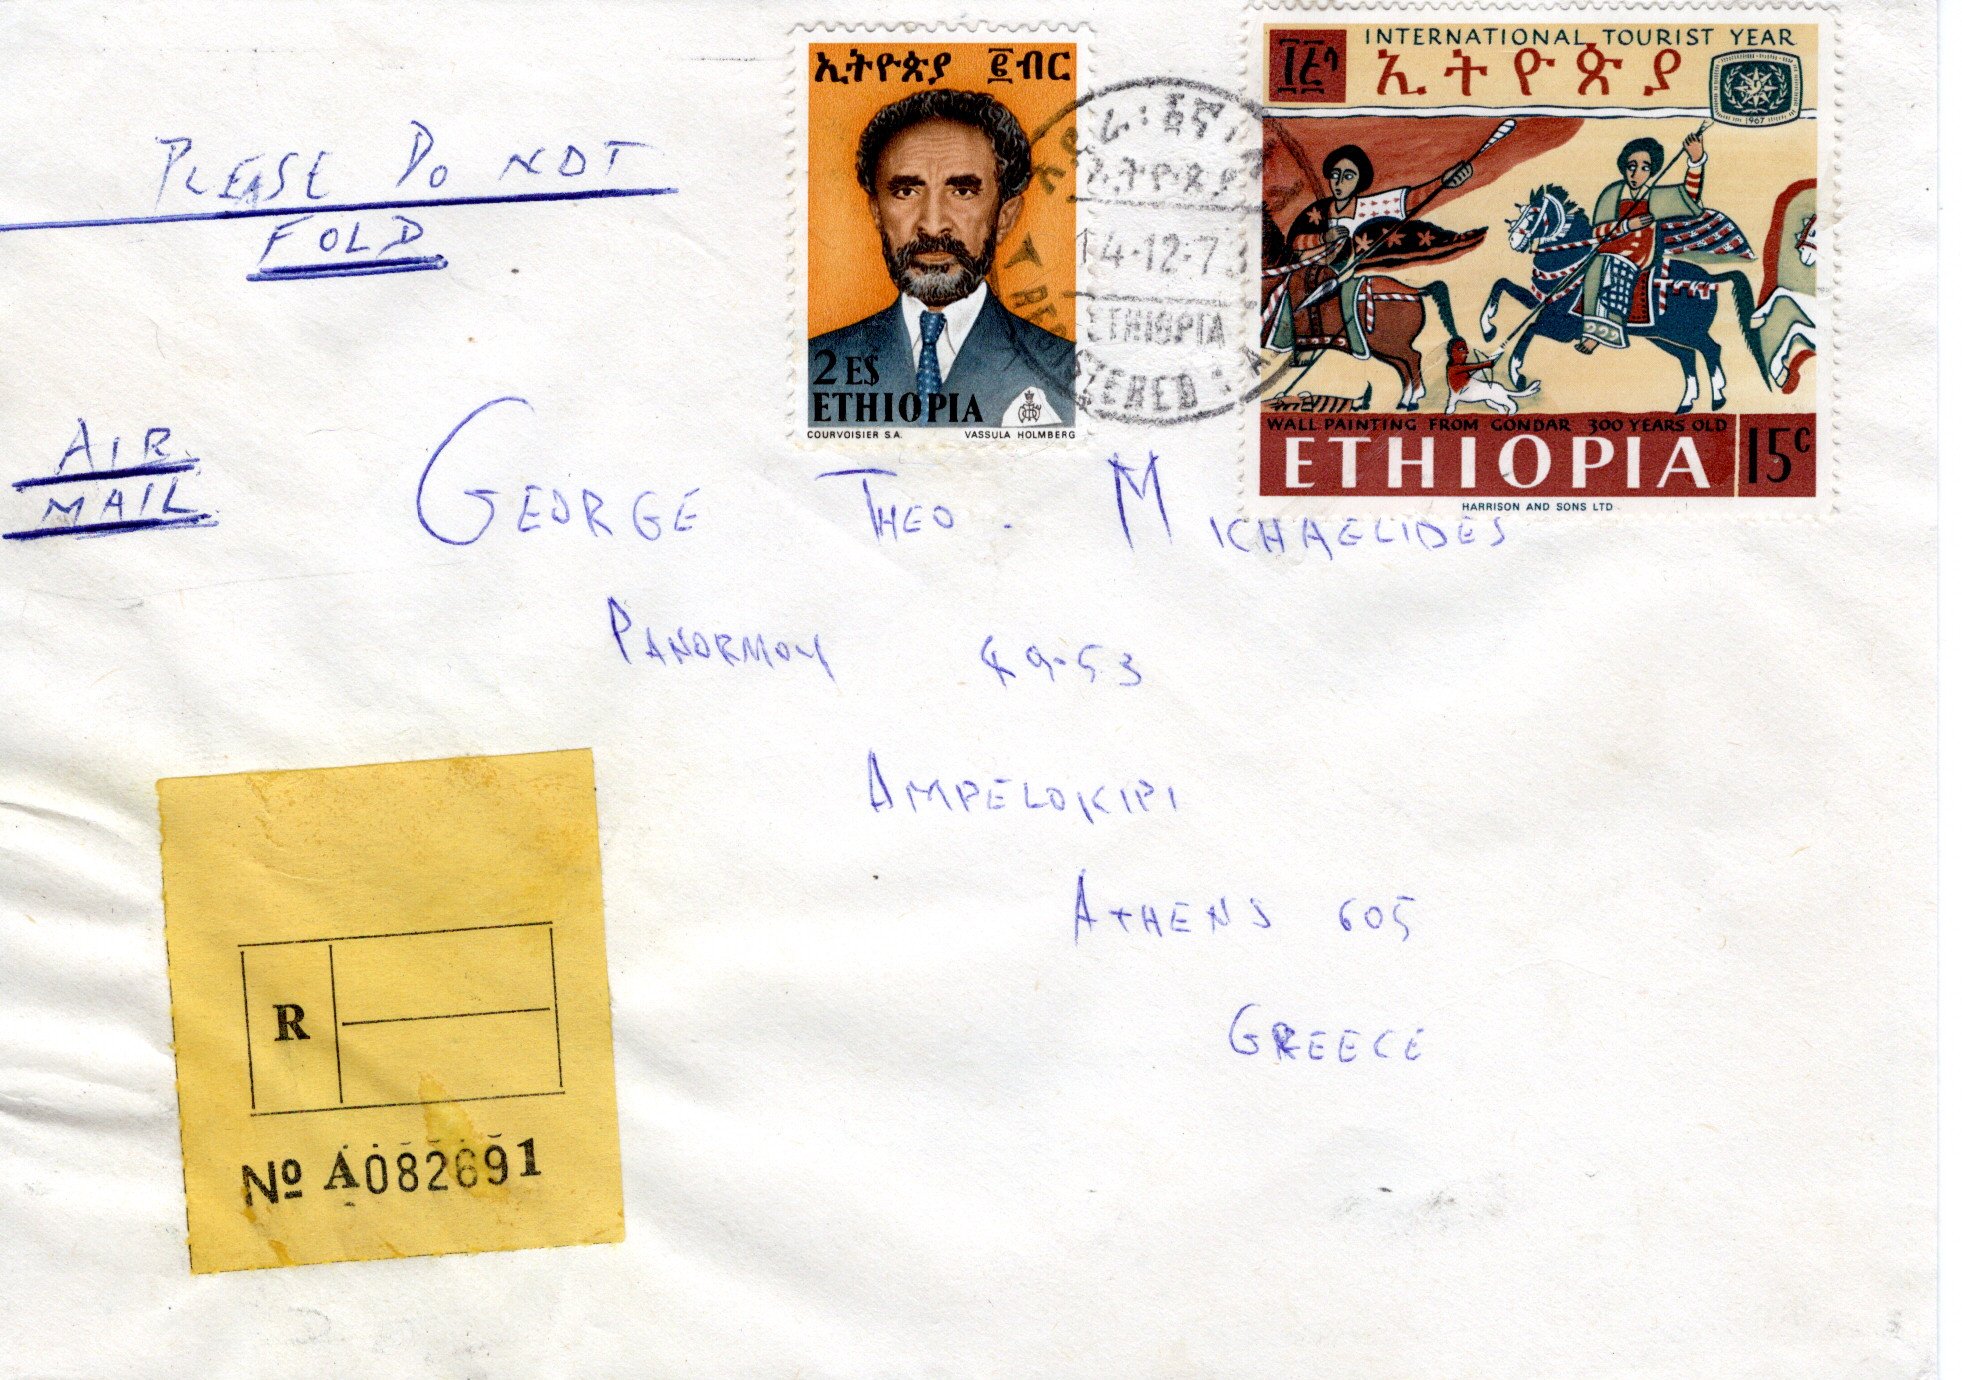 PLEASE DO NOT
FOLD
AIR
MAIL
ኢትዮጵያ ፪ብር
2 E$
ETHIOPIA
COURVOISIER S.A. VASSULA HOLMBERG
INTERNATIONAL TOURIST YEAR
ኢትዮጵያ
1967
WALL PAINTING FROM GONDAR 300 YEARS OLD
ETHIOPIA 15c
HARRISON AND SONS LTD
ኢትዮጵያ
14·12·73
ETHIOPIA
REGISTERED
GEORGE THEO. MICHAELIDES
PANORMOY 49-53
AMPELOKIPI
ATHENS 605
GREECE
R
No A082691